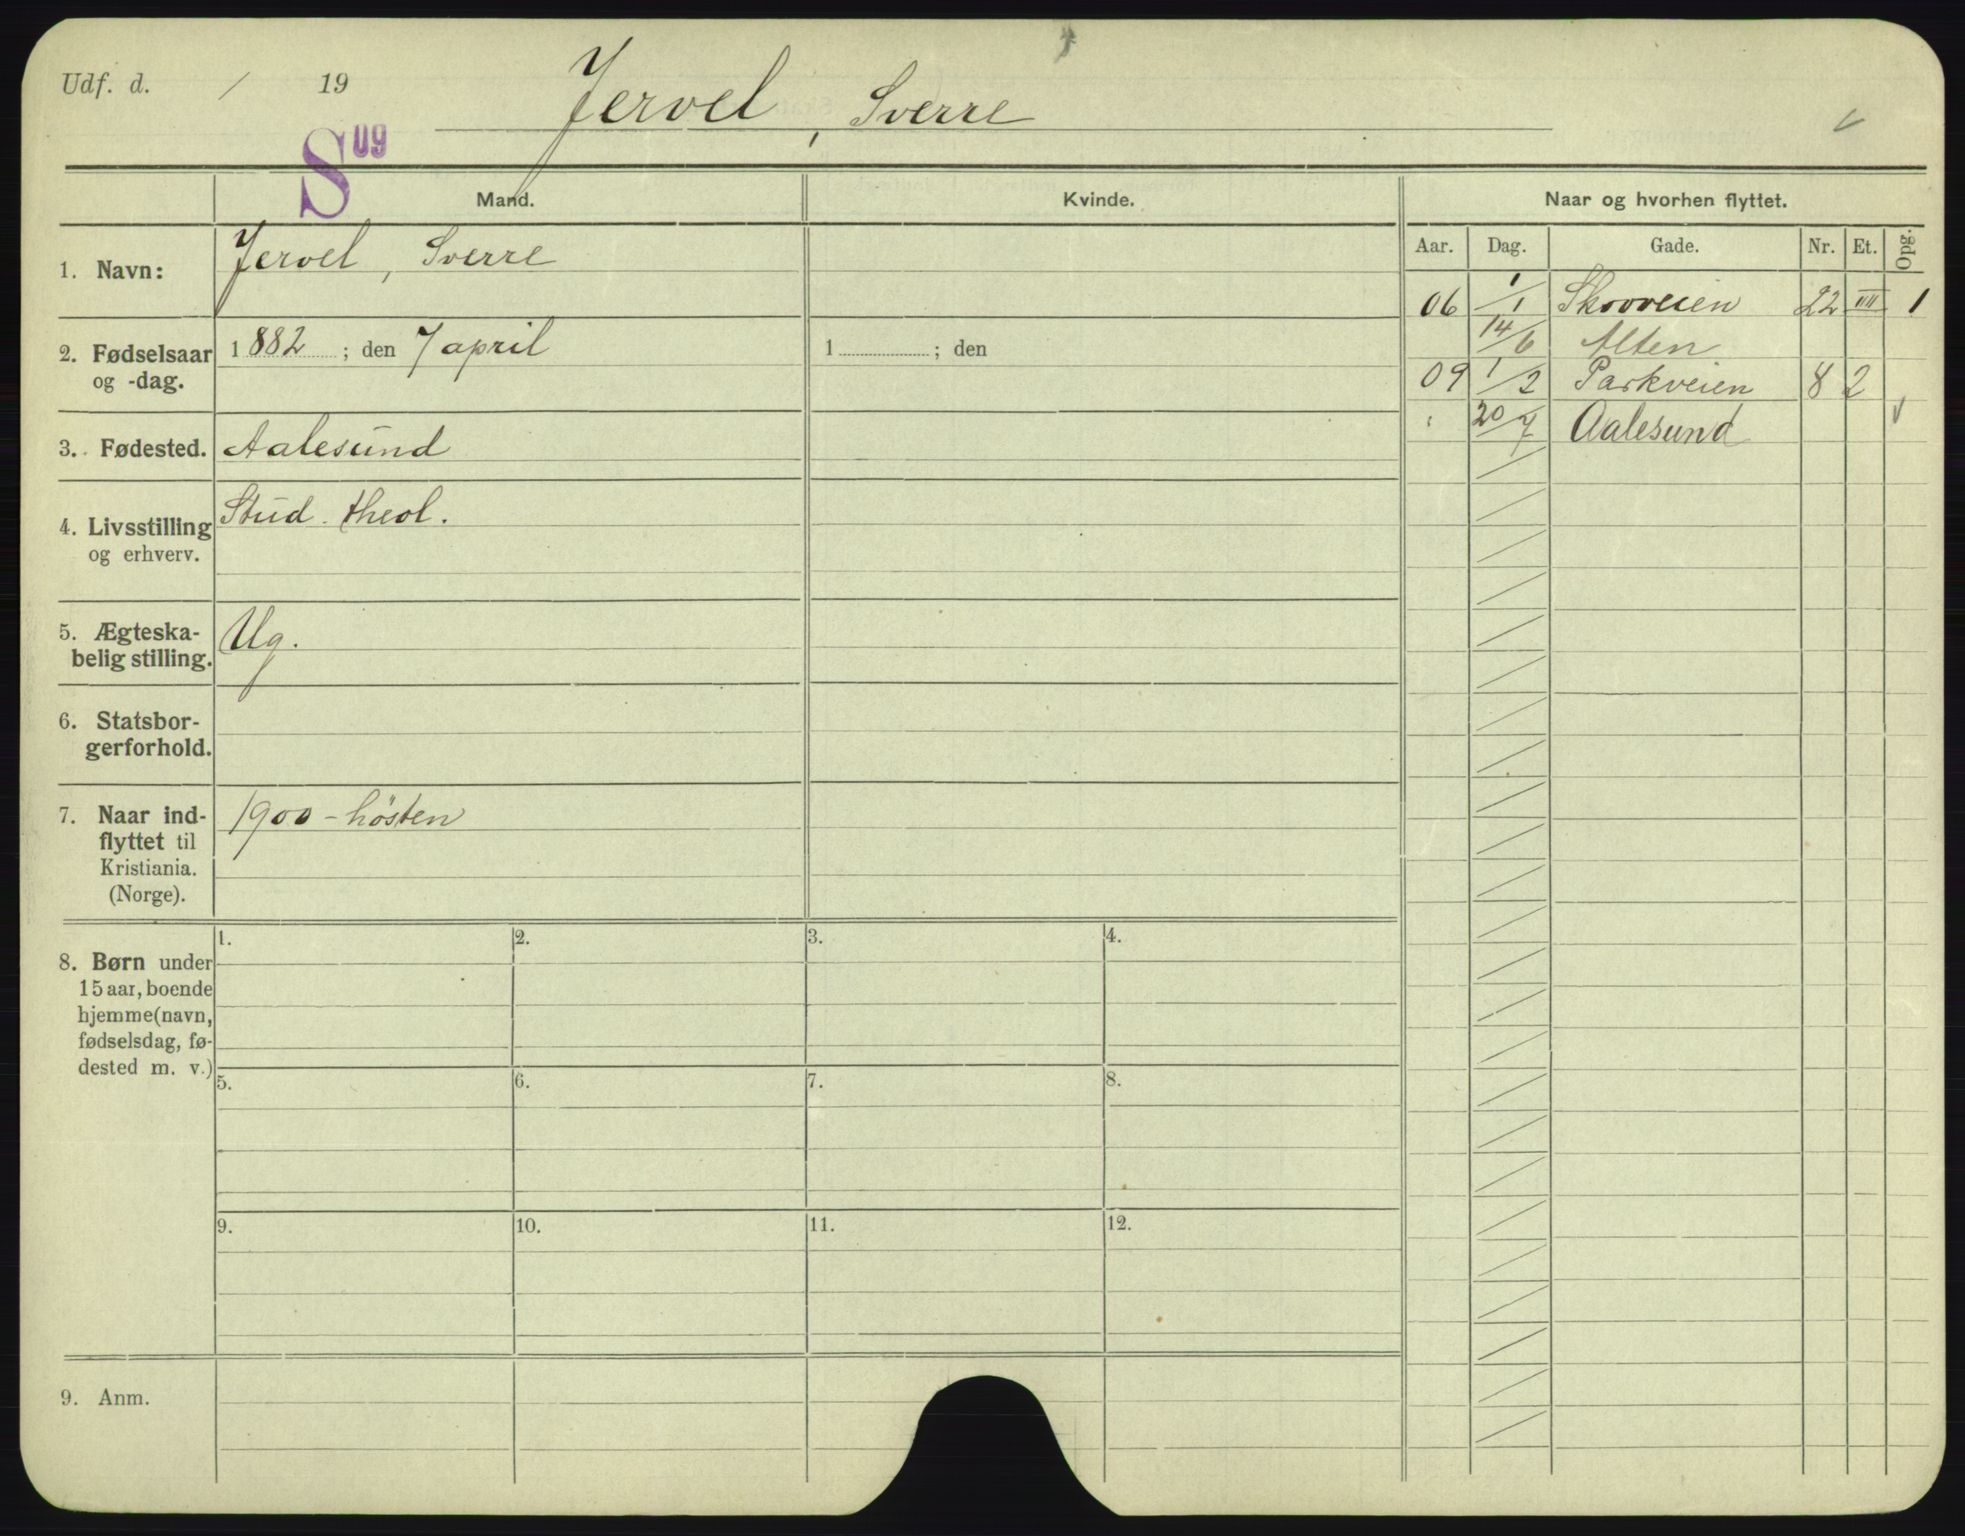 Udf. d. / 19
Jervel, Sverre
S 09
Mand. Kvinde. Naar og hvorhen flyttet.
Aar. Dag. Gade. Nr. Et. Opg.
1. Navn: Jervel, Sverre
2. Fødselsaar og -dag. 1882; den 7 april
1 ; den
3. Fødested. Aalesund
4. Livsstilling og erhverv. Stud. theol.
5. Ægteska-
belig stilling. Ug.
6. Statsbor-
gerforhold.
7. Naar ind-
flyttet til
Kristiania.
(Norge).
1900 - hösten
06 1/1 Skovveien 22 III 1
14/6 Alten
09 1/2 Parkveien 8 2
" 20/7 Aalesund
8. Børn under
15 aar, boende
hjemme (navn,
fødselsdag, fø-
dested m. v.)
1. 2. 3. 4.
5. 6. 7. 8.
9. 10. 11. 12.
9. Anm.